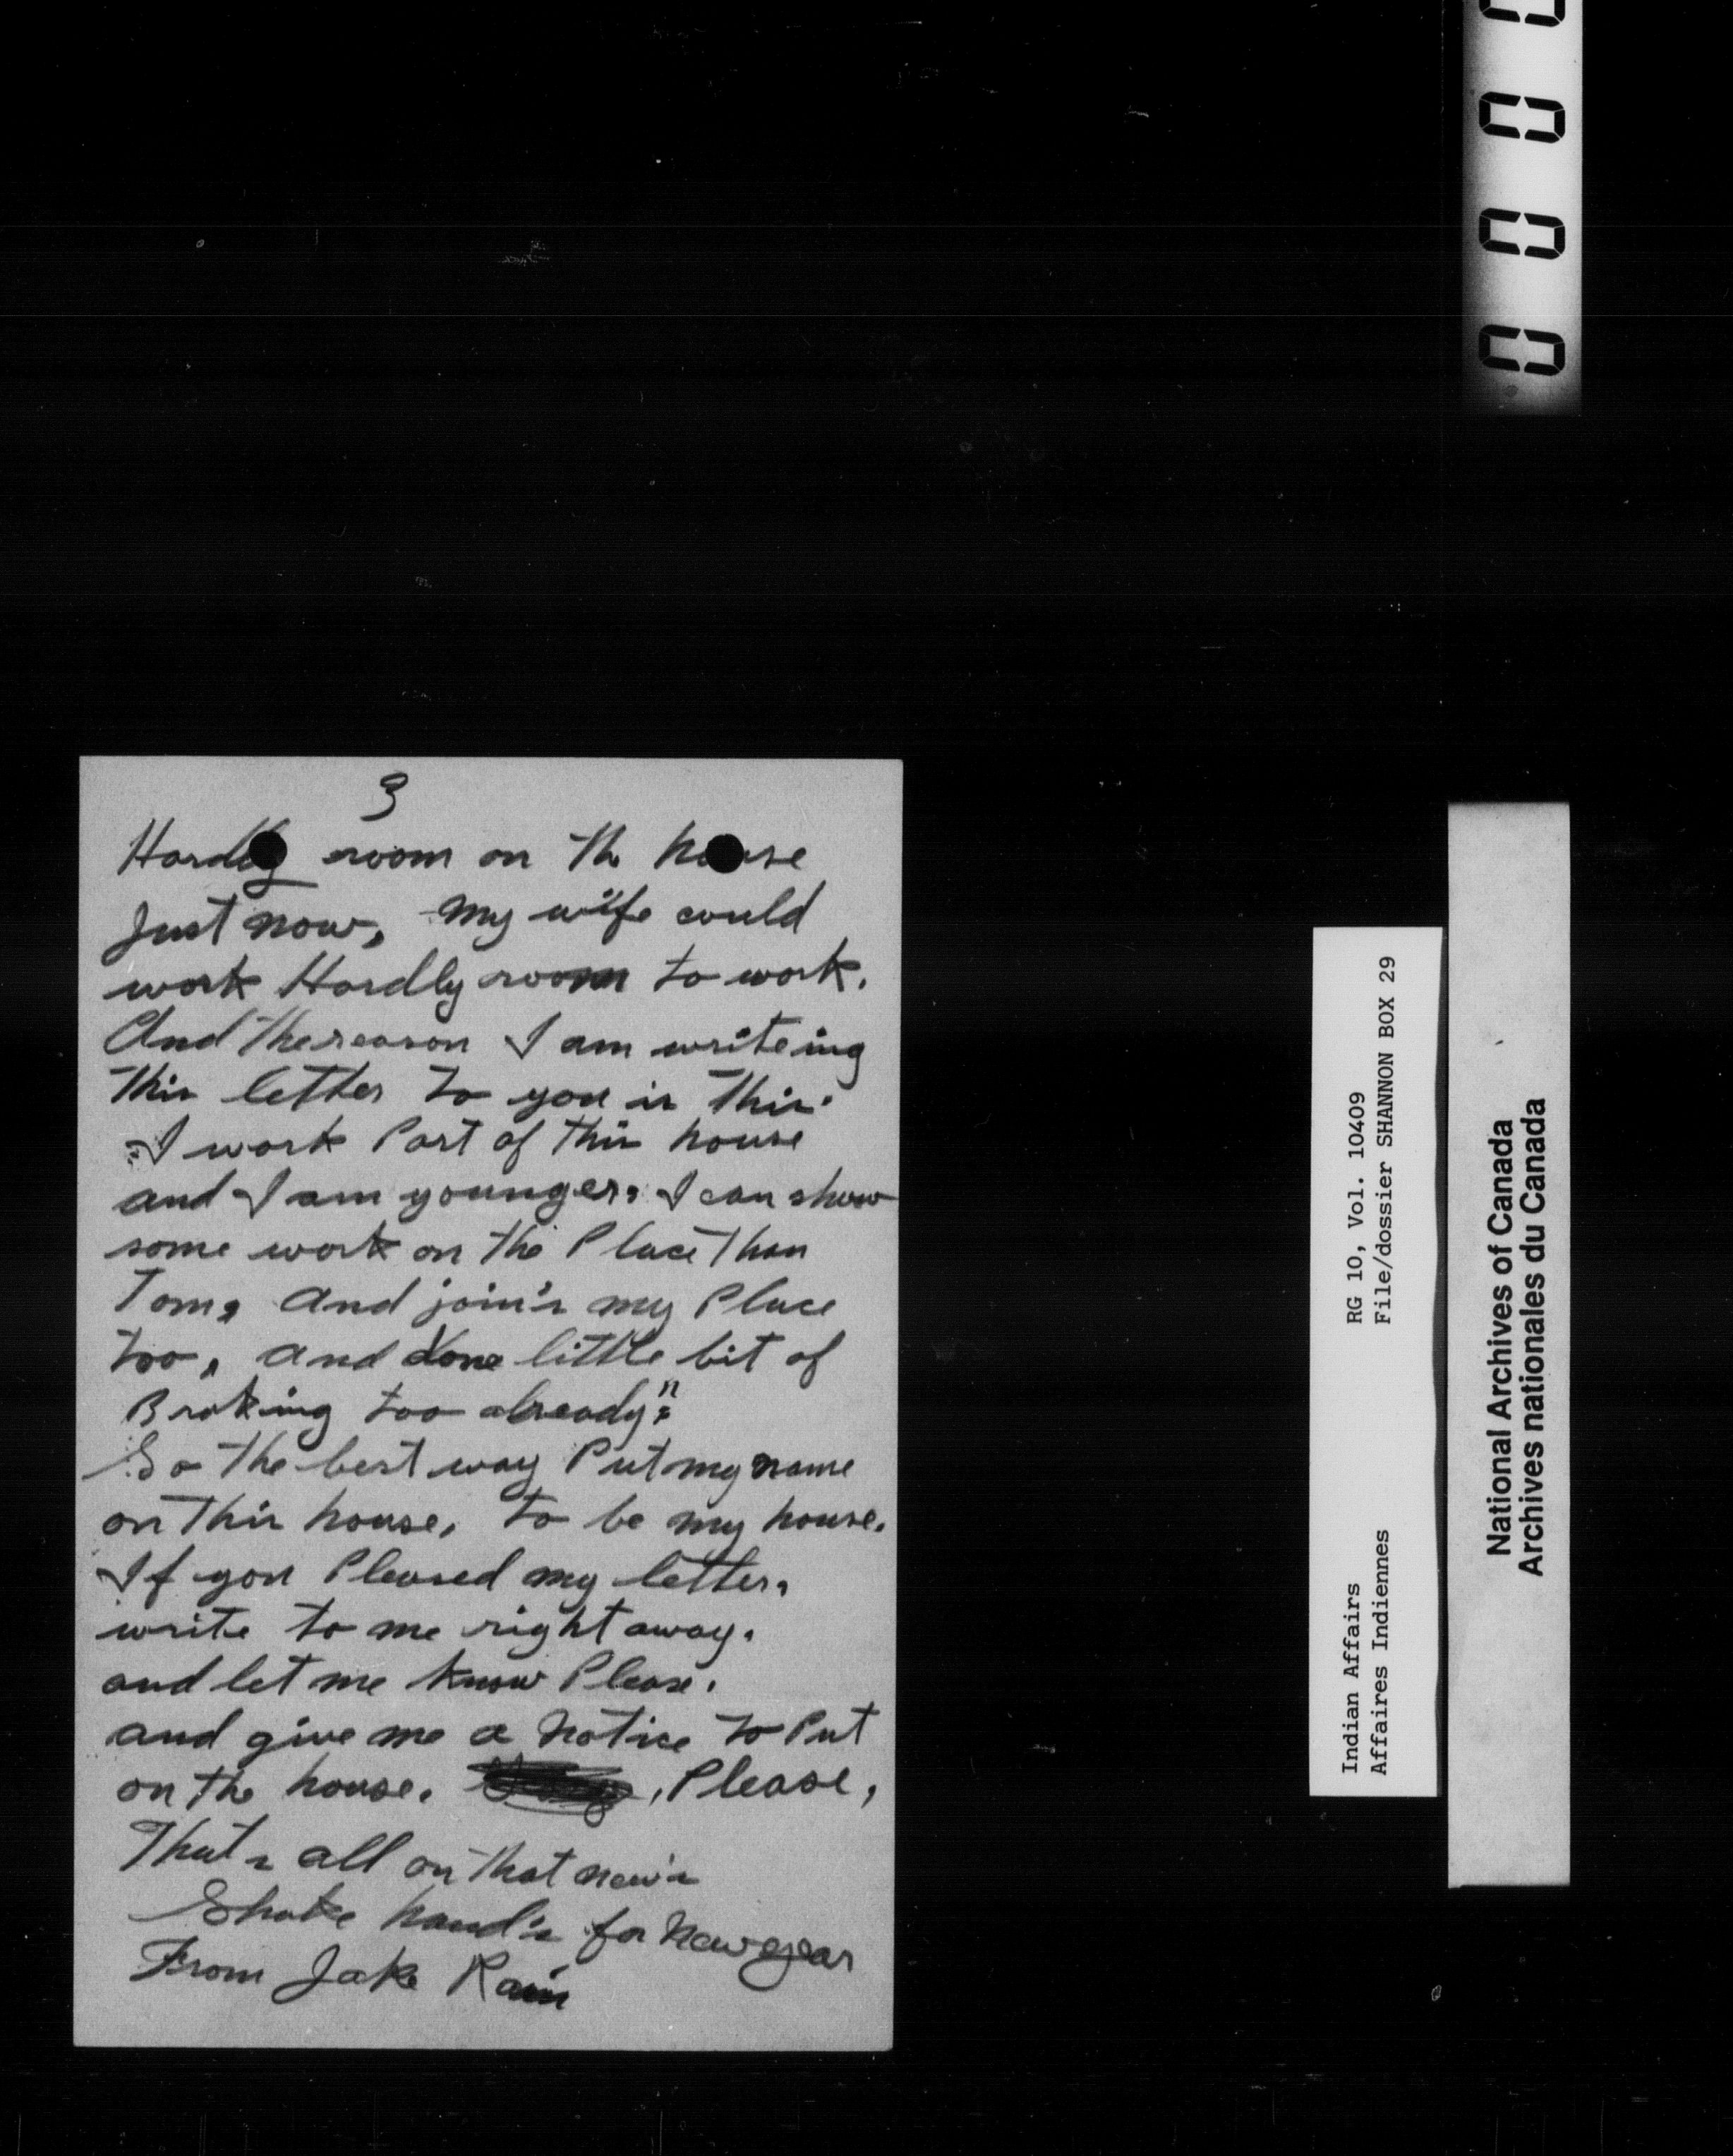 3
Hardly room on th house
Just now, my wife could
work Hardly room to work.
And the reason I am writeing
this letter to you is this.
I work Part of this house
and I am younger, I can show
some work on the Place Than
Tom, and join's my Place
too, and done little bit of
Braking too already"
So the best way Put my name
on this house, to be my house.
If you Pleased my letter,
write to me right away.
and let me know Please.
and give me a notice to Put
on the house. , Please,
That's all on that new's
Shake hand's for new year
From Jake Rain
0 0 0 0
RG 10, Vol. 10409
File/dossier SHANNON BOX 29
Indian Affairs
Affaires Indiennes
National Archives of Canada
Archives nationales du Canada